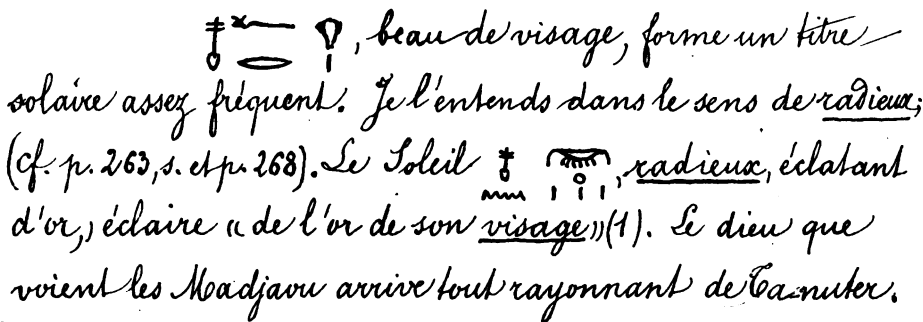 𓄤𓆑𓂋𓁷𓏤, beau de visage, forme un titre
solaire assez fréquent. Je l'entends dans le sens de radieux;
(cf. p. 263, s. et p. 268). Le Soleil 𓄤𓈖𓋞𓏥, radieux, éclatant
d'or,) éclaire « de l'or de son visage »(1). Le dieu que
voient les Madjaou arrive tout rayonnant de Ta-nuter.